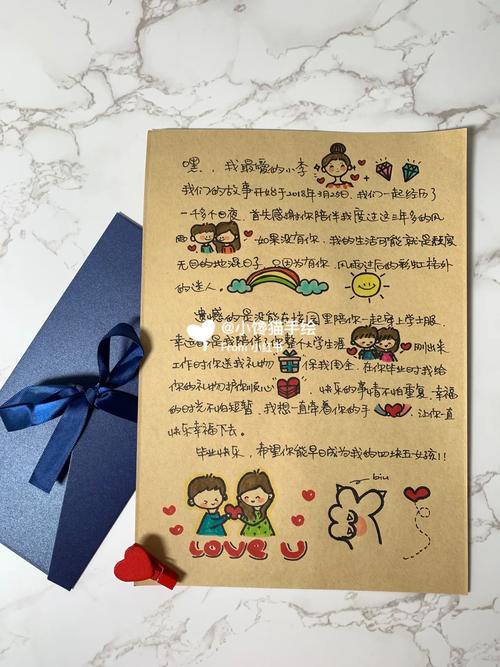 嘿，我最爱的小李
我们的故事开始于2018年3月25日，我们一起经历了
一千多个日夜，首先感谢你陪伴我度过这三年多的风
雨 如果没有你，我的生活可能就是
无目的地混日子，只因为有你，风雨过后的彩虹格外
的迷人。
遗憾的是没能在校园里陪你一起穿上学士服，
幸运的是我陪伴了你整个大学生涯 刚出来
工作时你送我礼物 保我周全，在你毕业时我给
你的礼物护你顺心 ，快乐的事情不怕重复，幸福
的时光不怕短暂，我想一直牵着你的手 让你一直
快乐幸福下去。
毕业快乐，希望你能早日成为我的四块五女孩!!
@小馋猫手绘
From 小红书
biu
LOVE U